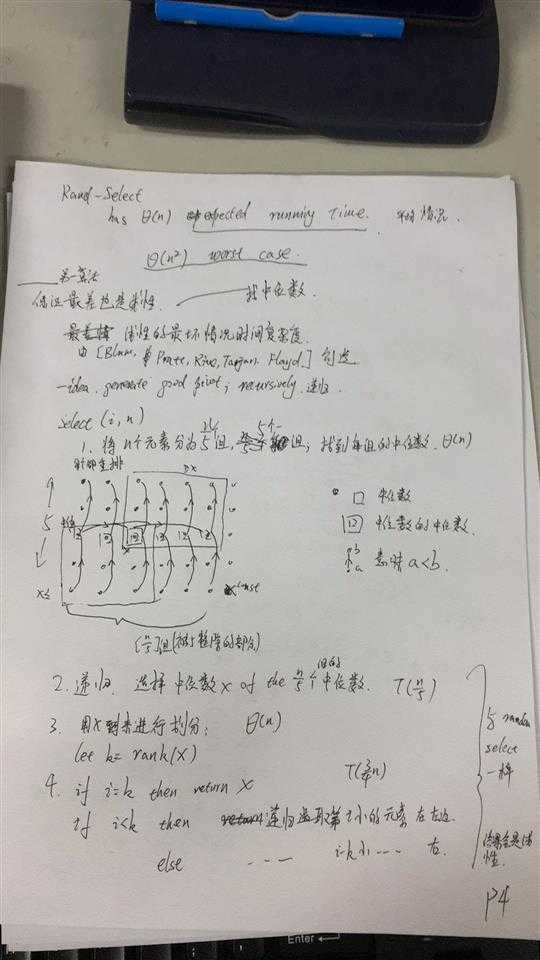 Rand-Select
has θ(n) expected running time. 平均情况.
θ(n²) worst case.
另一算法
保证最差也是线性. 找中位数.
线性的最坏情况时间复杂度.
由 [Blum, Pratt, Rive, Tarjan, Floyd] 创造
-idea. generate good pivot, recursively. 递归.
select (i, n)
1. 将 n个元素分为 n/5 组, 5个一组, 找到每组的中位数. θ(n)
≥x
5 中位
□ 中位数
中位数的中位数.
b
a 意味 a<b.
x≤
const
[n/5]组(被5整除的部分)
2. 递归. 选择中位数 x of the n/5个组的中位数. T(n/5)
3. 用x来进行划分; θ(n)
let k = rank(x)
4. if i=k then return x T(3/4n)
if i<k then 递归选取第i小的元素 在左边
else --- i-k小---- 右.
与 random
select
一样
结果会是线
性.
P4
Enter